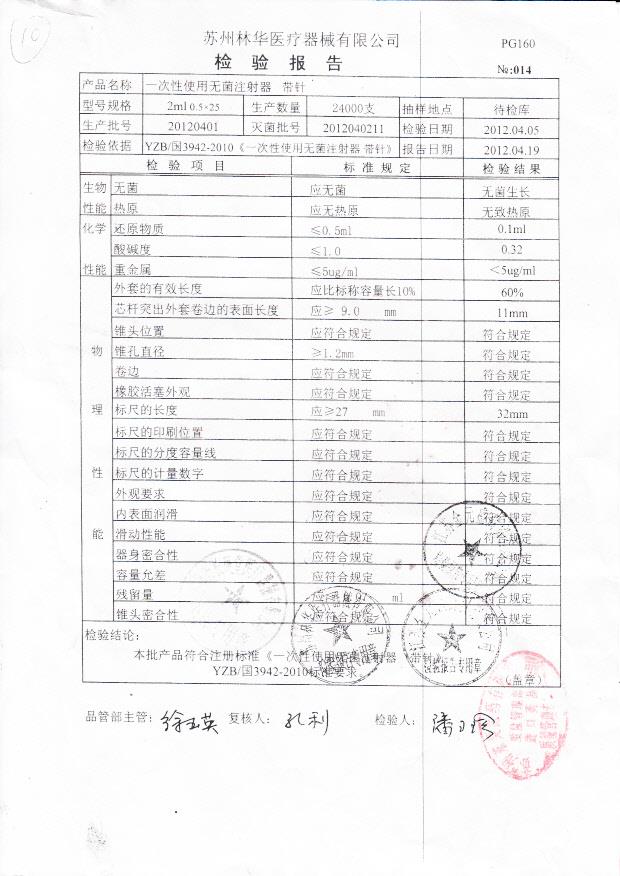 10
苏州林华医疗器械有限公司
PG160
检 验 报 告
№:014
产品名称 一次性使用无菌注射器 带针
型号规格 2ml 0.5×25 生产数量 24000支 抽样地点 待检库
生产批号 20120401 灭菌批号 2012040211 检验日期 2012.04.05
检验依据 YZB/国3942-2010《一次性使用无菌注射器 带针》 报告日期 2012.04.19
检 验 项 目 标 准 规 定 检 验 结 果
生物 无菌 应无菌 无菌生长
性能 热原 应无热原 无致热原
化学 还原物质 ≤0.5ml 0.1ml
酸碱度 ≤1.0 0.32
性能 重金属 ≤5ug/ml <5ug/ml
外套的有效长度 应比标称容量长10% 60%
芯杆突出外套卷边的表面长度 应≥ 9.0 mm 11mm
锥头位置 应符合规定 符合规定
物 锥孔直径 ≥1.2mm 符合规定
卷边 应符合规定 符合规定
橡胶活塞外观 应符合规定 符合规定
理 标尺的长度 应≥27 mm 32mm
标尺的印刷位置 应符合规定 符合规定
标尺的分度容量线 应符合规定 符合规定
性 标尺的计量数字 应符合规定 符合规定
外观要求 应符合规定 符合规定
内表面润滑 应符合规定 符合规定
能 滑动性能 应符合规定 符合规定
器身密合性 应符合规定 符合规定
容量允差 应符合规定 符合规定
残留量 应 ml 符合规定
锥头密合性 应符合规定 符合规定
检验结论:
本批产品符合注册标准《一次性使用无菌注射器 带针》
YZB/国3942-2010标准要求
(盖章)
品管部主管: 徐玉英 复核人: 孔利 检验人: